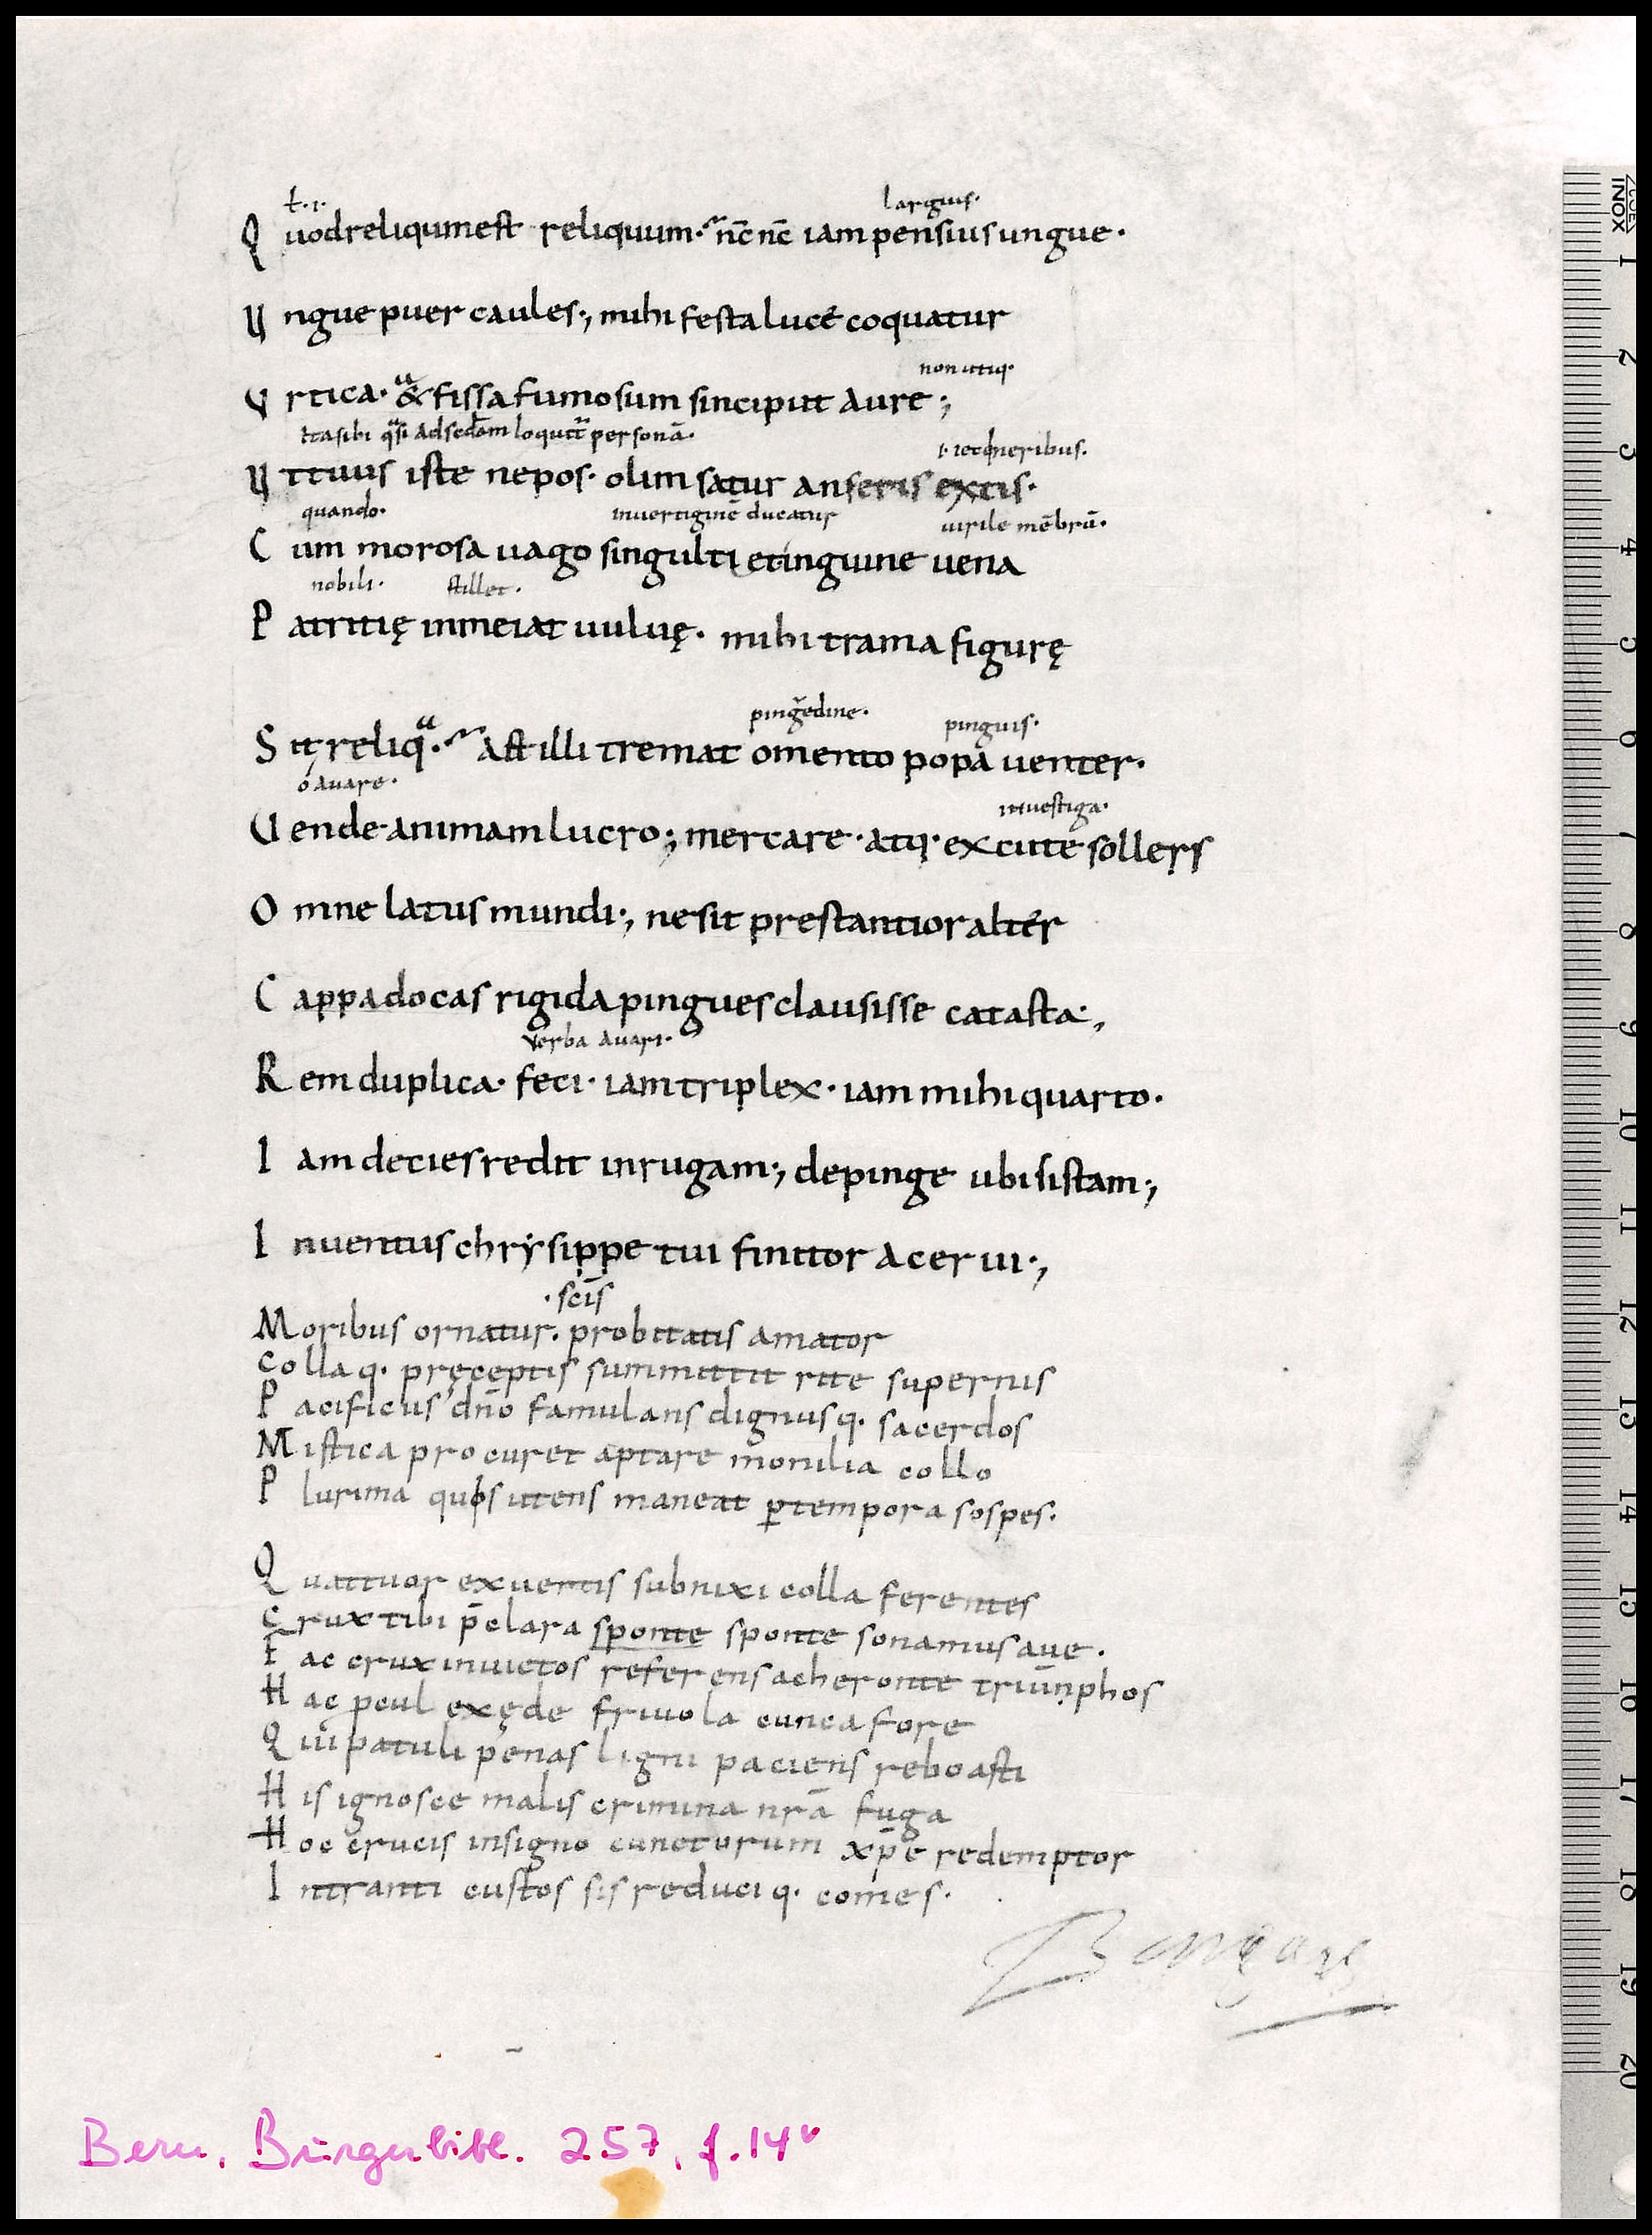 ƚ·i· largius·
Quod reliqum est reliquum· nc̄ nc̄ iam pensius ungue·
Ungue puer caules·, mihi festa lucē coquatur
non utiq·
Urtica· & fissa fumosum sinciput aure·,
personā·
Ut tuus iste nepos· olim satur anseris extis·
quando· invertiginē ducatur virile mēbrū·
Cum morosa vago singulti et inguine vena
nobili· stillet·
Patritię inmeiat vulvę· mihi trama figurę
pinguedine· pinguis·
Sit reliq· Ast illi tremat omento popa venter·
ó avare· investiga·
Vende animam lucro·, mercare· atq· excute sollers
Omne latus mundi·, ne sit prestantior alter
Cappadocas rigida pingues clausisse catasta·,
verba avari·
Rem duplica· feci· iam triplex· iam mihi quarto·
Iam decies redit in rugam·, depinge ubi sistam·,
Inventus chrysippe tui finitor acervi·,
·scīs
Moribus ornatur· probitatis amator
Colla q· pręceptis summittit rite supernis
Pacificus dn̄o famulans dignus q· sacerdos
Mistica procuret aptare monilia collo
Plurima quis utens maneat ꝑ tempora sospes·
Quattuor ex ventis subnixi colla ferentes
Crux tibi p̄clara sponte sponte sonamus ave·
Fac crux invictos referens acheronte triūnphos
Hac pcul exęde frivola cunca fore
Qui patuli penas ligni paciens reboasti
His ignosce malis crimina nrā fuga
Hoc crucis insigno cunctorum xp̄e redemptor
Intranti custos sis reduci q· comes·
Bongars
Bern, Burgerbibl. 257, f. 14v
INOX
1
2
3
4
5
6
7
8
9
10
11
12
13
14
15
16
17
18
19
20